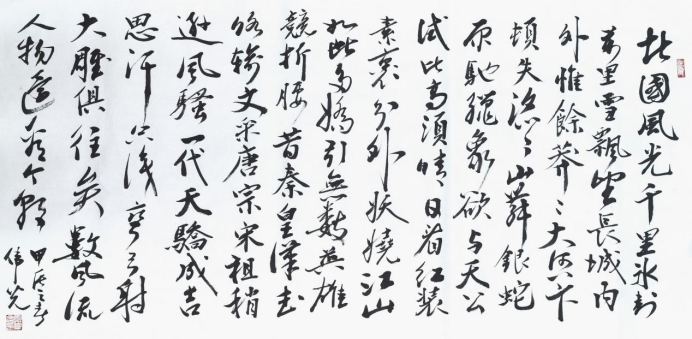 北國風光千里冰封
萬里雪飄望長城内
外惟餘莽〻大河上下
頓失滔〻山舞銀蛇
原馳蠟象欲与天公
試比高須晴日看紅裝
素裹分外妖嬈江山
如此多嬌引無數英雄
競折腰昔秦皇漢武
略輸文采唐宗宋祖稍
遜風騷一代天驕成吉
思汗只識彎弓射
大雕俱往矣數風流
人物還看今朝
甲辰之春
偉光